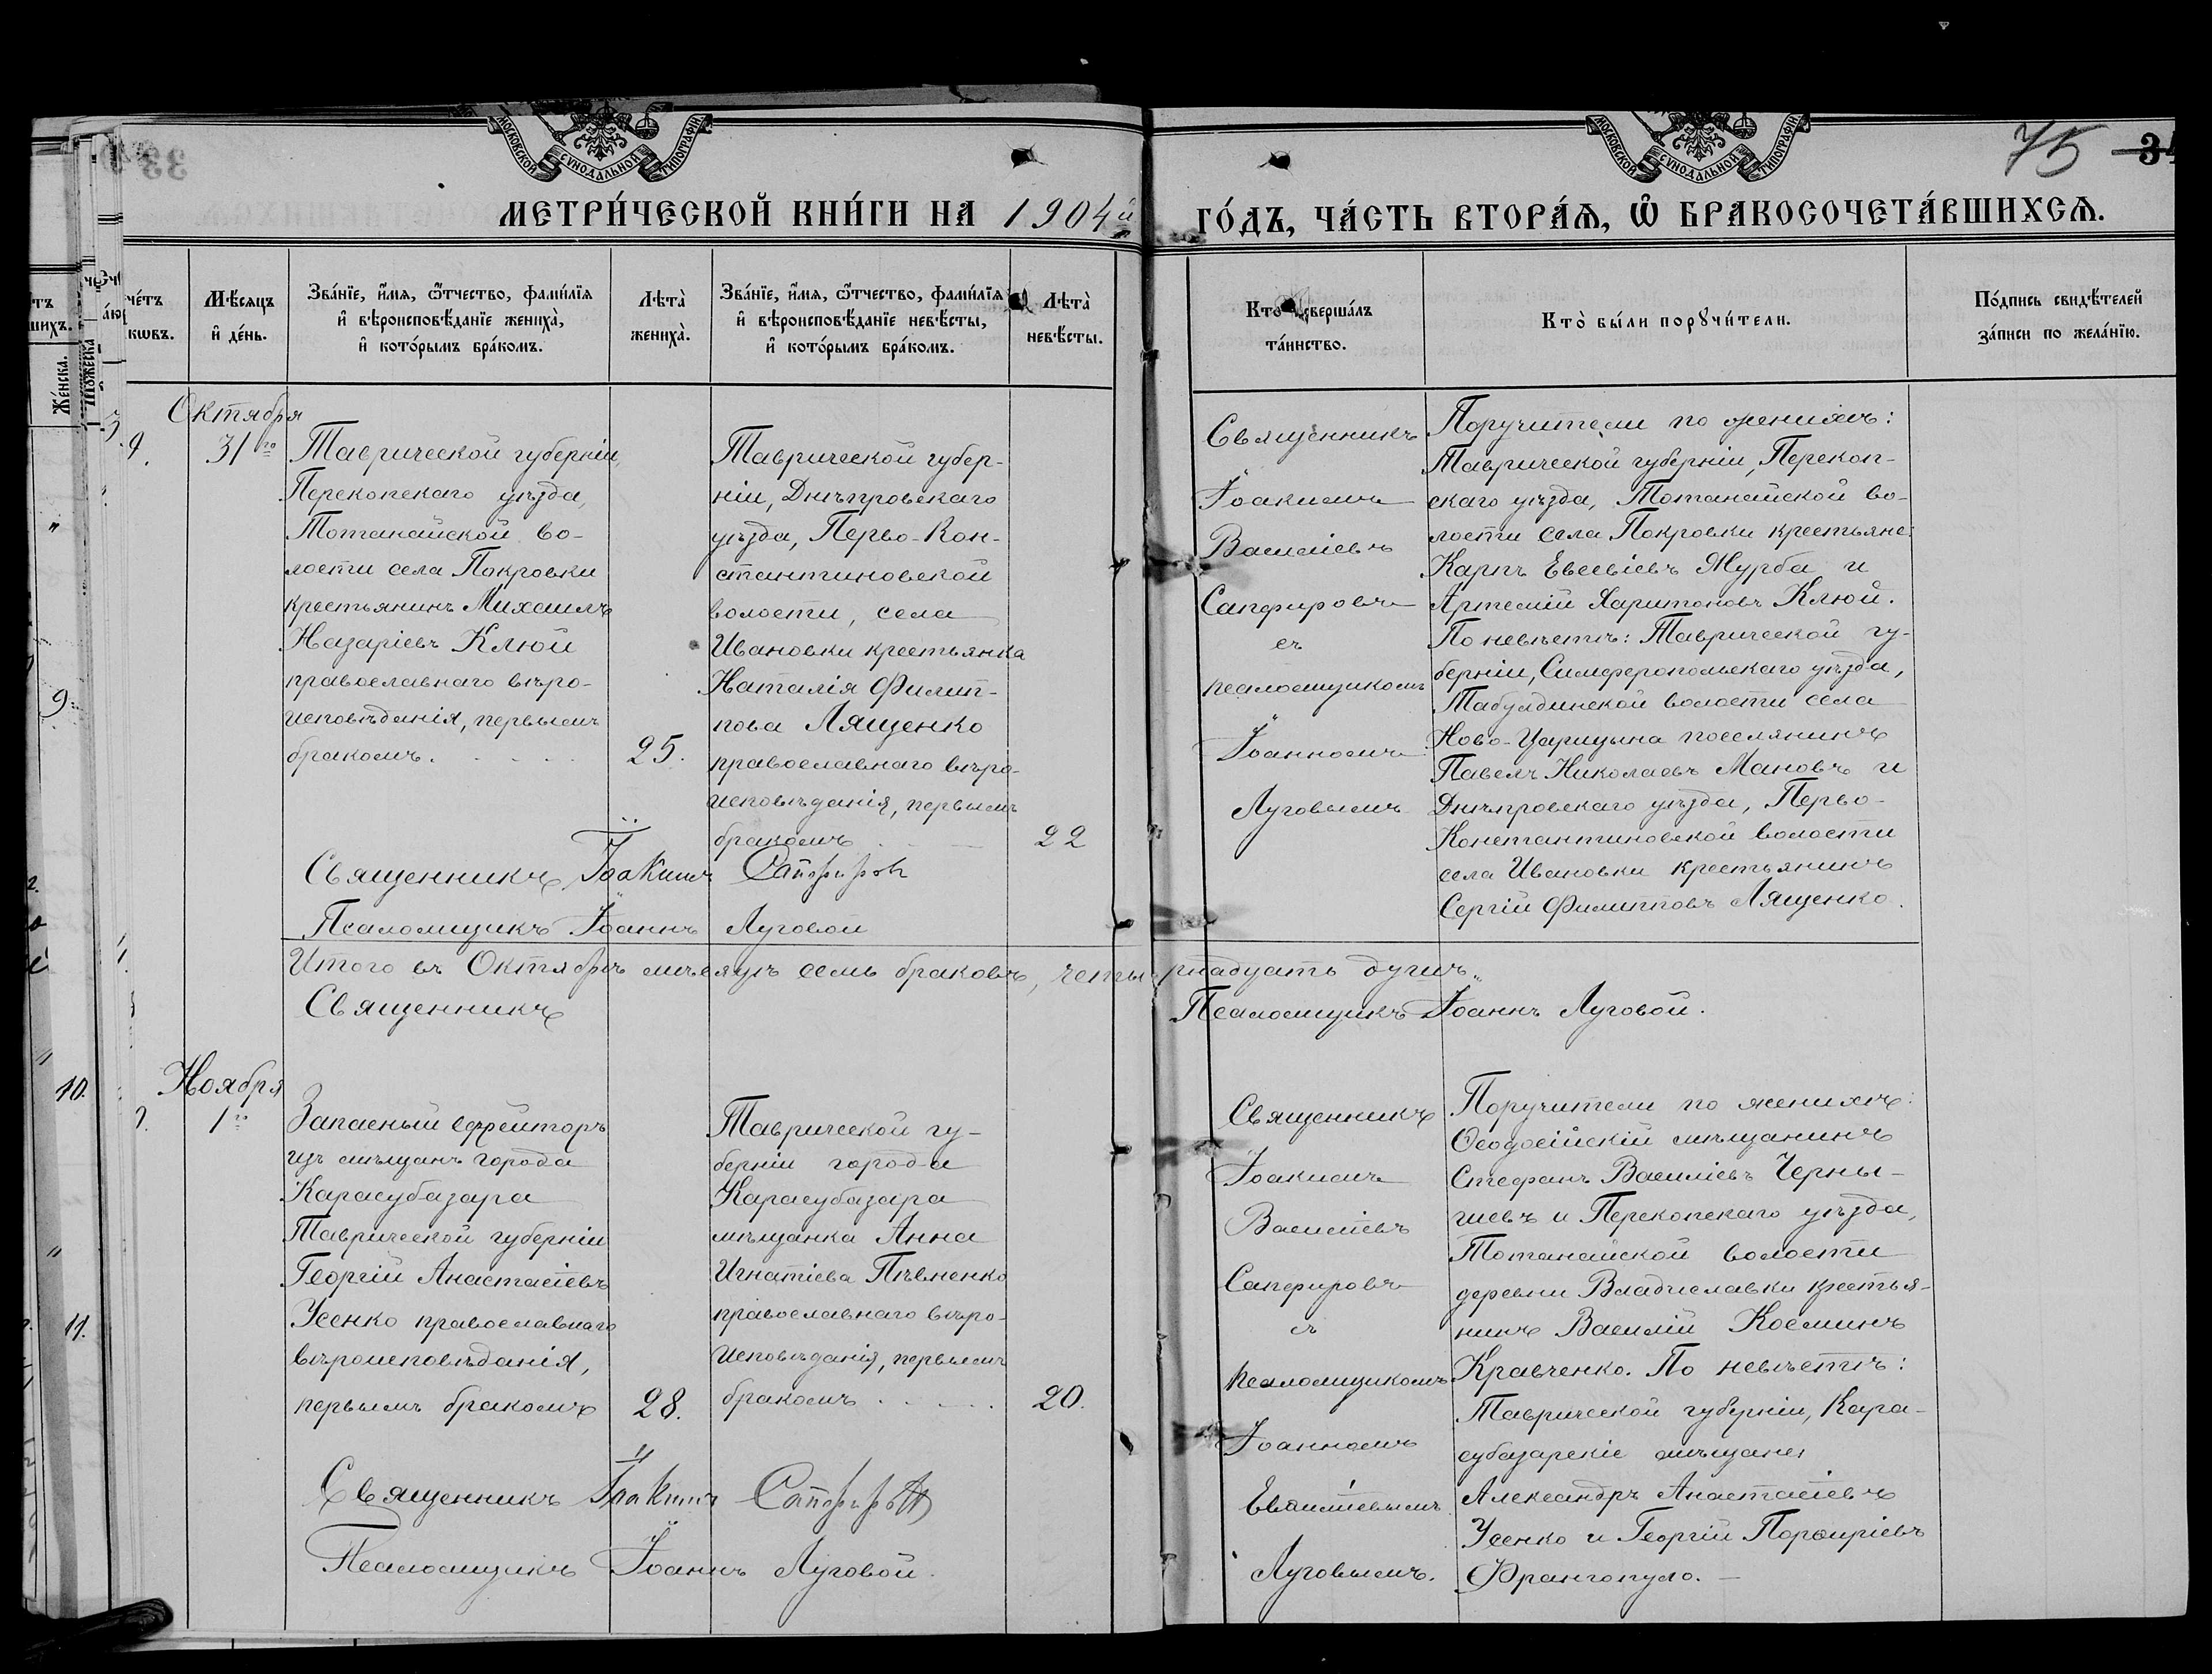 МОСКОВСКОЙ СѴНОДАЛЬНОЙ ТИПОГРАФІИ
МОСКОВСКОЙ СѴНОДАЛЬНОЙ ТИПОГРАФІИ
75 34
МЕТРИ́ЧЕСКОЙ КНИ́ГИ НА 1904й
ГО́ДЪ, ЧА́СТЬ ВТОРА́Я, Ѡ҆ БРАКОСОЧЕТА́ВШИХСЯ.
че́тъ
кѡвъ.
Мѣ́сяцъ
и҆ де́нь.
Зва́нїе, и҆́мя, ѻ҆́тчество, фами́лїя
и҆ вѣроисповѣ́данїе жениха̀,
и҆ кото́рымъ бра́комъ.
Лѣта̀
жениха̀.
Зва́нїе, и҆́мя, ѻ҆́тчество, фами́лїя
и҆ вѣроисповѣ́данїе невѣ́сты,
и҆ кото́рымъ бра́комъ.
Лѣта̀
невѣ́сты.
Кто̀ соверша́лъ
та́инство.
Кто̀ бы́ли порꙋчи́тели.
По́дпись свидѣ́телей
за́писи по жела́нїю.
Же́нска.
Октября
31го
Таврической губерніи,
Перекопскаго уѣзда,
Тотанайской во-
лости села Покровки
крестьянинъ Михаилъ
Назаріевъ Клюй
православнаго вѣро-
исповѣданія, первымъ
бракомъ.
25.
Таврической губер-
ніи, Днѣпровскаго
уѣзда, Перво-Кон-
стантиновской
волости, села
Ивановки крестьянка
Наталія Филип-
пова Лященко
православнаго вѣро-
исповѣданія, первымъ
бракомъ
22
Священникъ
Іоакимъ
Василіевъ
Сапфировъ
съ
псаломщикомъ
Іоанномъ
Луговымъ
Поручители по женихѣ:
Таврической губерніи, Перекоп-
скаго уѣзда, Тотанайской во-
лости села Покровки крестьяне:
Карпъ Евсевіевъ Журба и
Артемій Харитоновъ Клюй.
По невѣстѣ: Таврической гу-
берніи, Симферопольскаго уѣзда,
Табулдинской волости села
Ново-Царицына поселянинъ
Павелъ Николаевъ Мановъ и
Днѣпровскаго уѣзда, Перво-
Константиновской волости
села Ивановки крестьянинъ
Сергій Филипповъ Лященко.
Священникъ Іоакимъ Сапфировъ
Псаломщикъ Іоаннъ Луговой
Итого въ Октябрѣ мѣсяцѣ семь браковъ, четырнадцать душъ.
Священникъ
Псаломщикъ Іоаннъ Луговой.
Ноября
1го
Запасный ефрейторъ
изъ мѣщанъ города
Карасубазара
Таврической губерніи
Георгій Анастасіевъ
Усенко православнаго
вѣроисповѣданія,
первымъ бракомъ
28.
Таврической гу-
берніи города
Карасубазара
мѣщанка Анна
Игнатіева Пѣвненко
православнаго вѣро-
исповѣданія, первымъ
бракомъ
20.
Священникъ
Іоакимъ
Василіевъ
Сапфировъ
съ
псаломщикомъ
Іоанномъ
Луговымъ.
Поручители по женихѣ:
Ѳеодосійскій мѣщанинъ
Стефанъ Василіевъ Черны-
шевъ и Перекопскаго уѣзда,
Тотанайской волости
деревни Владиславки крестья-
нинъ Василій Косминъ
Кравченко. По невѣстѣ:
Таврической губерніи, Кара-
субазарскіе мѣщане
Александръ Анастасіевъ
Усенко и Георгій Порфиріевъ
Франгопуло.
Священникъ Іоакимъ Сапфировъ
Псаломщикъ Іоаннъ Луговой.
9.
10.
11.